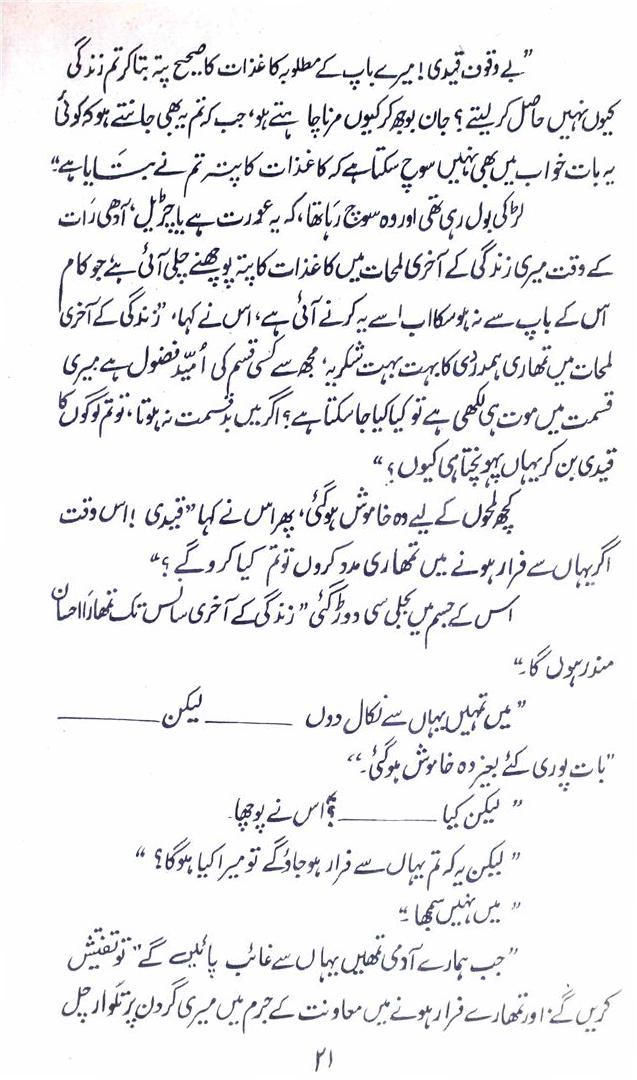 ”بے وقوف قیدی! میرے باپ کے مطلوبہ کاغذات کا صحیح پتہ بتا کر تم زندگی
کیوں نہیں حاصل کر لیتے؟ جان بوجھ کر کیوں مرنا چاہتے ہو، جب کہ تم یہ بھی جانتے ہو کہ کوئی
یہ بات خواب میں بھی نہیں سوچ سکتا ہے کہ کاغذات کا پتہ تم نے بتایا ہے۔“
لڑکی بول رہی تھی اور وہ سوچ رہا تھا، کہ یہ عورت ہے یا چڑیل، آدھی رات
کے وقت میری زندگی کے آخری لمحات میں کاغذات کا پتہ پوچھنے چلی آئی ہے جو کام
اس کے باپ سے نہ ہو سکا اب اسے یہ کرنے آئی ہے، اس نے کہا، ”زندگی کے آخری
لمحات میں تمھاری ہمدردی کا بہت بہت شکریہ، مجھ سے کسی قسم کی اُمّید فضول ہے میری
قسمت میں موت ہی لکھی ہے تو کیا کیا جا سکتا ہے؟ اگر میں بدقسمت نہ ہوتا، تو تم لوگوں کا
قیدی بن کر یہاں پہونچتا ہی کیوں؟“
کچھ لمحوں کے لیے وہ خاموش ہو گئی، پھر اس نے کہا ”قیدی! اس وقت
اگر یہاں سے فرار ہونے میں تمھاری مدد کروں تو تم کیا کرو گے؟“
اس کے جسم میں بجلی سی دوڑ گئی ”زندگی کے آخری سانس تک تمھارا احسان
مندر ہوں گا۔“
”میں تمہیں یہاں سے نکال دوں ______ لیکن ______
”بات پوری کئے بغیر وہ خاموش ہو گئی۔“
”لیکن کیا ______؟“ اس نے پوچھا۔
”لیکن یہ کہ تم یہاں سے فرار ہو جاؤ گے تو میرا کیا ہوگا؟“
”میں نہیں سمجھا۔“
”جب ہمارے آدمی تمھیں یہاں سے غائب پائیں گے“ تو تفتیش
کریں گے؛ اور تمھارے فرار ہونے میں معاونت کے جرم میں میری گردن پر تلوار چل
۲۱